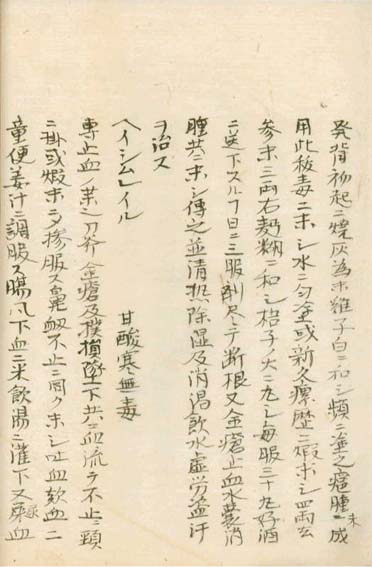 発背初起ニ焼灰為末雞子白ニ和シ頻ニ塗之瘡腫未ニ成
用此抜毒ニ末シ水ニ匀塗或新久瘰歴ニ煅末シ四両玄
参末三両右麪糊ニ和シ格子ノ大ニ丸シ毎服三十丸好酒
ニ送下スルヿ日ニ三服削尽シテ断根又金瘡止血水
腫共ニ末シ傅之並清熱除湿及消渇飲水虚労盗汗
ヲ治ス
ヘイシムレイル 甘酸寒無毒
専止血ノ薬之刀斧金瘡及撲損墜下共ニ血流テ不止ニ頭
ニ掛或煅末ニ〆摻服ス鼻衂不止ニ同ク末シ吐血欬血ニ
童便姜汁ニ調服ス腸風下血ニ米飲湯ニ灌下又尿血